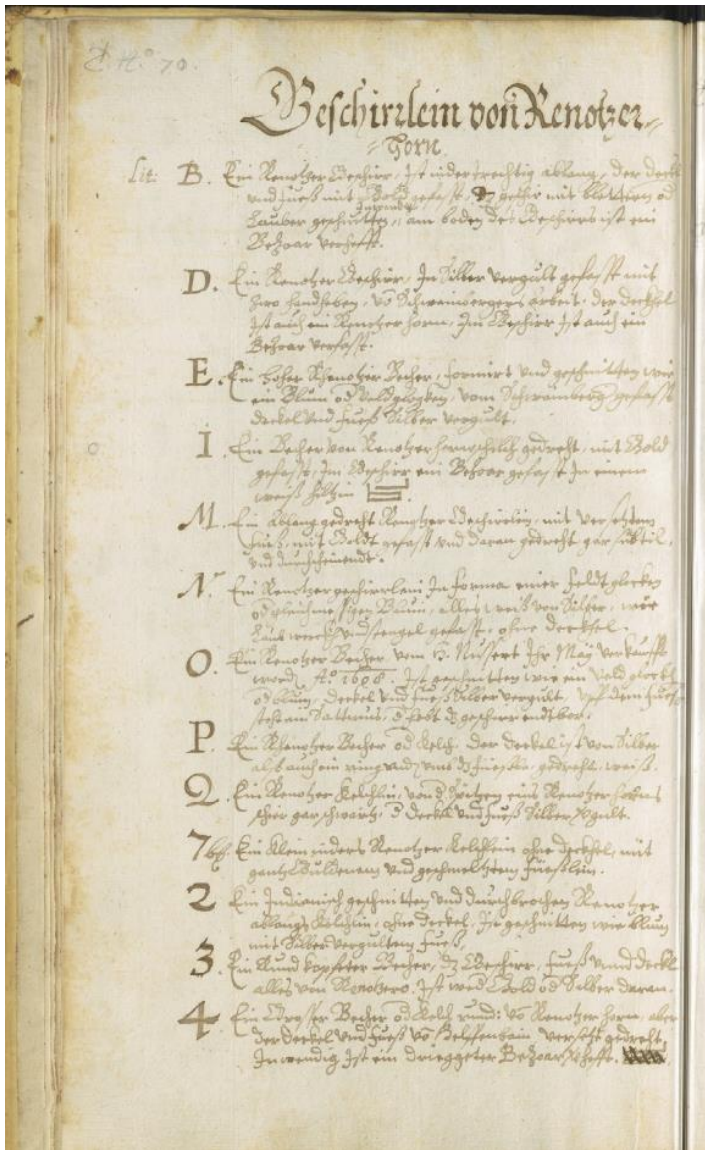 Z. A.° 70.
Geschirrlein von Renotzer-
Horn
Lit: B. Ein Renotzer Geschirr, Ist niderträchtig ablang, der deckel
und fueß mit Gold gefasst, dz geschir mit blettern od
Inwendig
Lauber geschnitten, am boden des Geschirrs ist ein
Bezoar verhefft.
D. Ein Renotzer Geschirr, In Silber vergült gefasst mit
zwo handheben, vō Schweinbergers arbeit. der deckhel
Ist auch ein Renotzer horn, Im Geschirr Ist auch ein
Bezoar verfasst.
E. Ein hoher Rhenotzer Becher, formirt und geschnitten wie
ein Blum od veldglogken, vom Schwanberg gefasst
deckel und fueß Silber vergült.
I. Ein Becher von Renotzer gedreht, mit Gold
gefasst, Im Geschirr ein Bezoar gefasst In einem
weiß hiltzin
M. Ein Ablang gedreht Renotzer Geschirrlein, mit versetztem
fueß, mit Goldt gefasst und daran gedreht gar subtil,
und durchscheinendt.
N. Ein Renotzer geschirrlein In forma einer feldt glocken
od gleichme ssigen Blum, alles weiß von Silber, wie
Laub werckh und stengel gefasst, ohne deckhel.
O. Ein Renotzer Becher vom H. Nusert Ihr May verkaufft
word, A.° 1608. Ist geschnitten wie ein veld glockh
od blum, deckel und fueß Silber vergült, uff dem fueß
steht ein Satturnus, d hebt dz geschirr endtbor.
P. Ein Rhenotzer Becher od kelch. der deckel ist von Silber
alß auch ein ring und umb dz fuesslin, gedreht, weiß.
Q. Ein Renotzer kelchlin, von d spitzen eins Renotzer horens
schier gar schwartz, d deckel und fueß Silber vgült.
7 Ein klein niders Renotzer kelchlein ohne deckhel, mit
gantz Guldenem und geschmeltztem fuesslein.
2 Ein Indianisch geschnitten und durchbrochen Renotzer
ablangs kelchlin, ohne deckel, Ist geschnitten wie blum
mit Silber vergultem fueß,
3. Ein Rund kopfeter Becher, dz Geschirr, fueß unnd deckel
alles von Renotzero. Ist wed Gold od Silber daran.
4 Ein Grosser Becher od kelch rund: vō Renotzer horn, aber
der deckel und fueß vō Helffenbain versetzt gedreht,
Inwendig Ist ein drieggeter Bezoar vhefft.